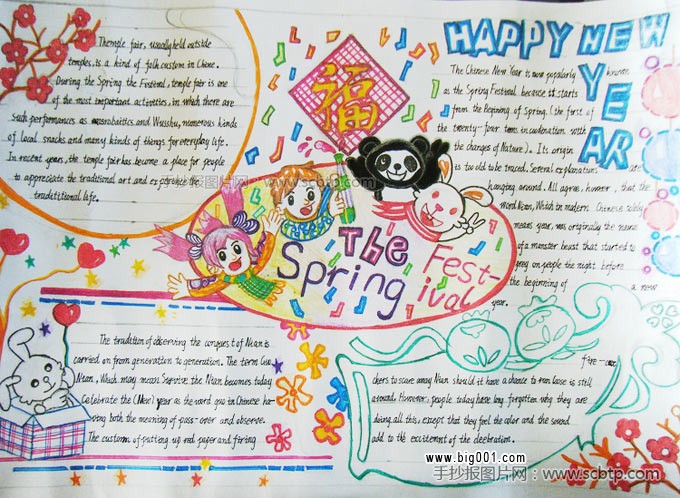 Themple fair, usually held outside
temples, is a kind of folk custom in China.
During the Spring the Festival, temple fair is one
of the most important activities, in which there are
such performances as acrobatics and Wushu, numerous kinds
of local snacks and many kinds of things for everyday life.
In recent years, the temple fair has become a place for people
to appreciate the traditional art and experience the
tradetitional life.
福
HAPPY NEW
YEAR
The Chinese New Year is more popularly known
as the Spring Festival because it starts
from the Begining of Spring (the first of
the twenty-four terms in coordination with
the changes of Nature). Its origin
is too old to be traced. Several explanations are
hanging around. All agree, however, that the
word Nian, Which in modern Chinese solely
means year, was originally the name
of a monster beast that started to
prey on people the night before
the beginning of a new
year.
The
Spring
Fest-
ival
The tradition of observing the conquest of Nian is
carried on from generation to generation. The term Guo
Nian, Which may mean Survive the Nian becomes today
Celebrate the (New) year as the word guo in Chinese ha-
ving both the meaning of pass-over and observe.
The custom of putting up red paper and firing
fire-crac-
kers to scare away Nian should it have a chance to run loose is still
around. However, people today have long forgotten why they are
doing all this, except that they feel the color and the sound
add to the excitement of the celebration.
手抄报图片网 - www.scbtp.com
www.big001.com
手抄报图片网:www.scbtp.com